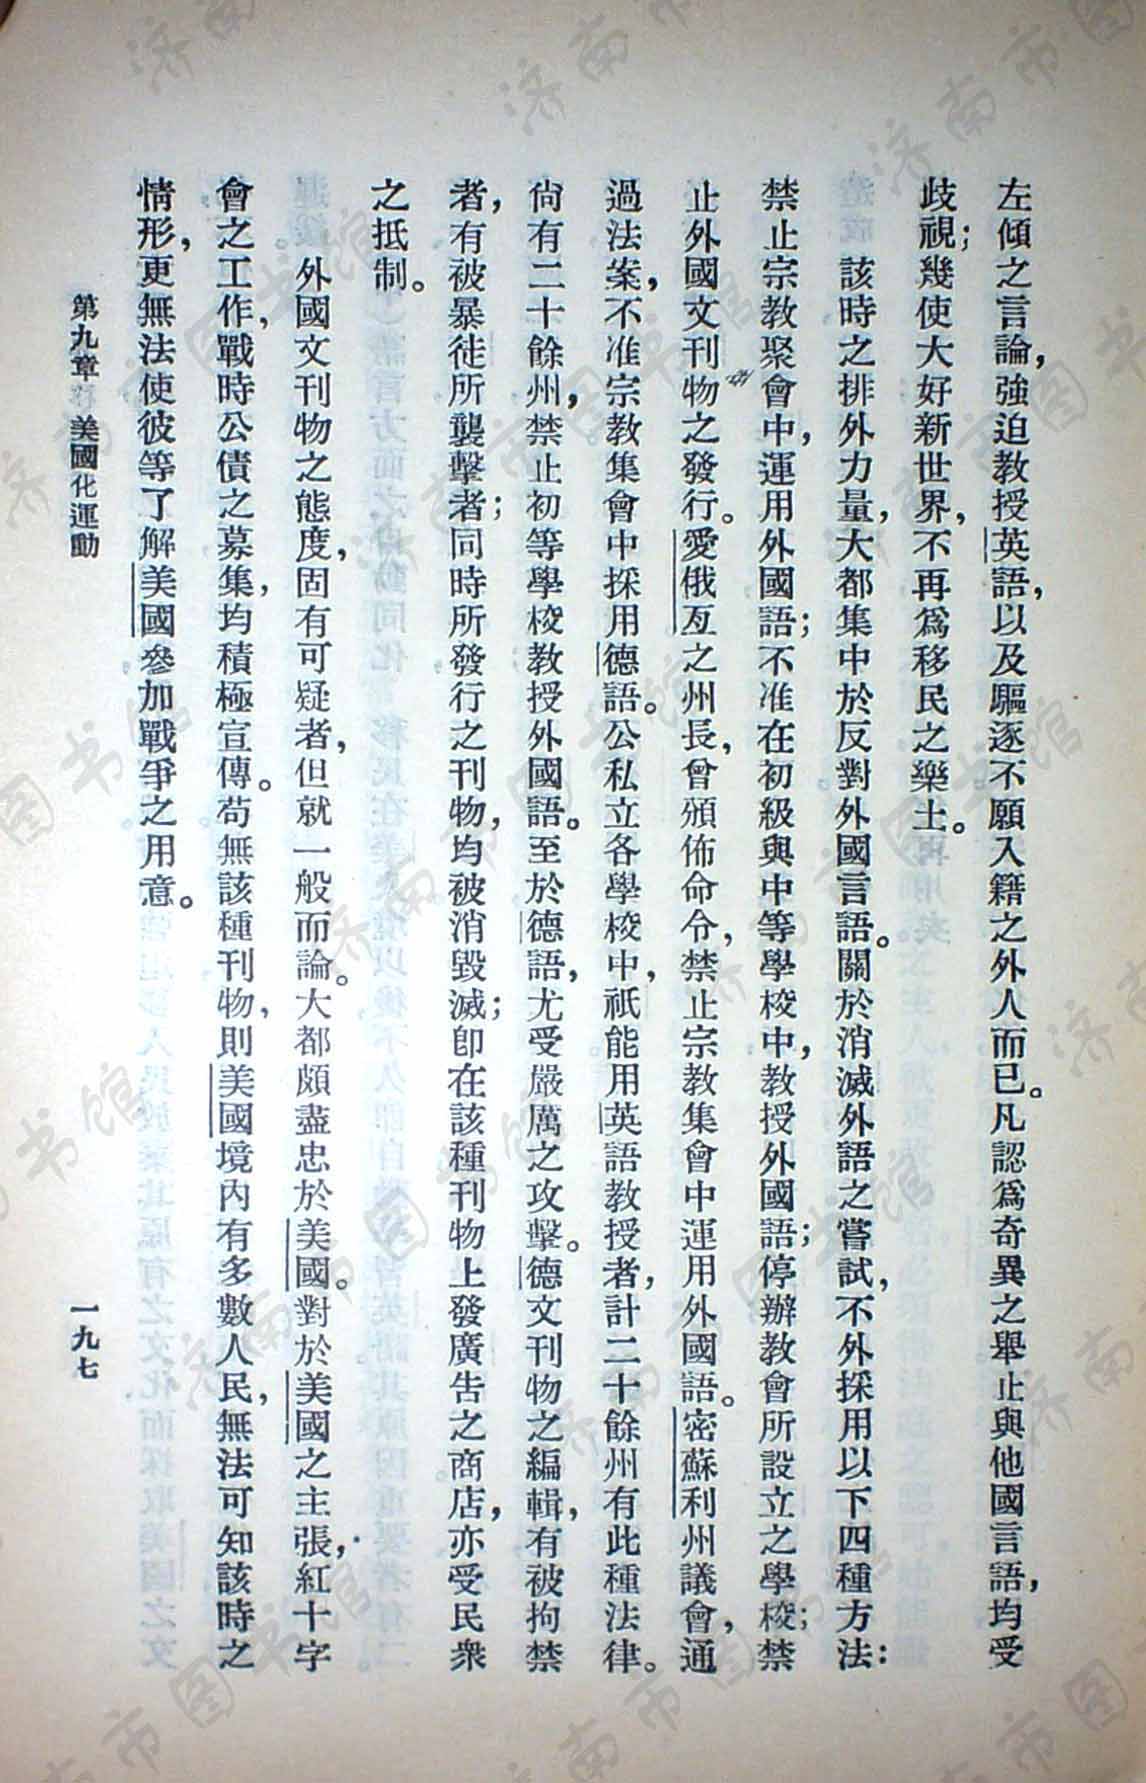 左傾之言論，強迫教授英語，以及驅逐不願入籍之外人而已。凡認爲奇異之舉止與他國言語，均受
歧視；幾使大好新世界，不再爲移民之樂土。
該時之排外力量，大都集中於反對外國言語。關於消滅外語之嘗試，不外採用以下四種方法：
禁止宗教聚會中，運用外國語；不准在初級與中等學校中，教授外國語；停辦教會所設立之學校；禁
止外國文刊物之發行。愛俄亙之州長，曾頒佈命令，禁止宗教集會中運用外國語。密蘇利州議會，通
過法案，不准宗教集會中採用德語。公私立各學校中，祇能用英語教授者，計二十餘州有此種法律。
尙有二十餘州，禁止初等學校教授外國語。至於德語，尤受嚴厲之攻擊。德文刊物之編輯，有被拘禁
者，有被暴徒所襲擊者；同時所發行之刊物，均被消毀滅；卽在該種刊物上發廣告之商店，亦受民衆
之抵制。
外國文刊物之態度，固有可疑者，但就一般而論。大都頗盡忠於美國。對於美國之主張，紅十字
會之工作，戰時公債之募集，均積極宣傳。苟無該種刊物，則美國境內有多數人民，無法可知該時之
情形，更無法使彼等了解美國參加戰爭之用意。
第九章 美國化運動
一九七
济南市图书馆